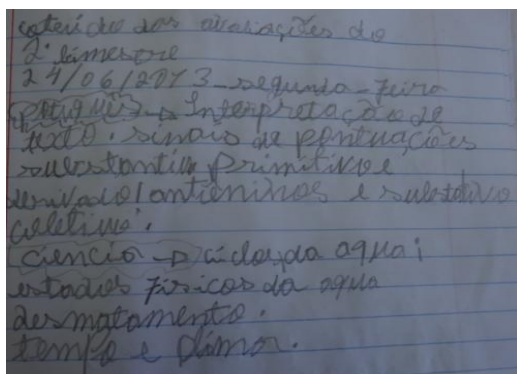 conteúdo das avaliações do
2º bimestre
24/06/2013 - segunda-feira
português → Interpretação de
texto. sinais de pontuações
substantivo primitivo e
derivado/antônimos e substantivo
coletivo.
ciencia → ciclos da agua;
estados fisicos da agua
desmatamento.
tempo e clima.